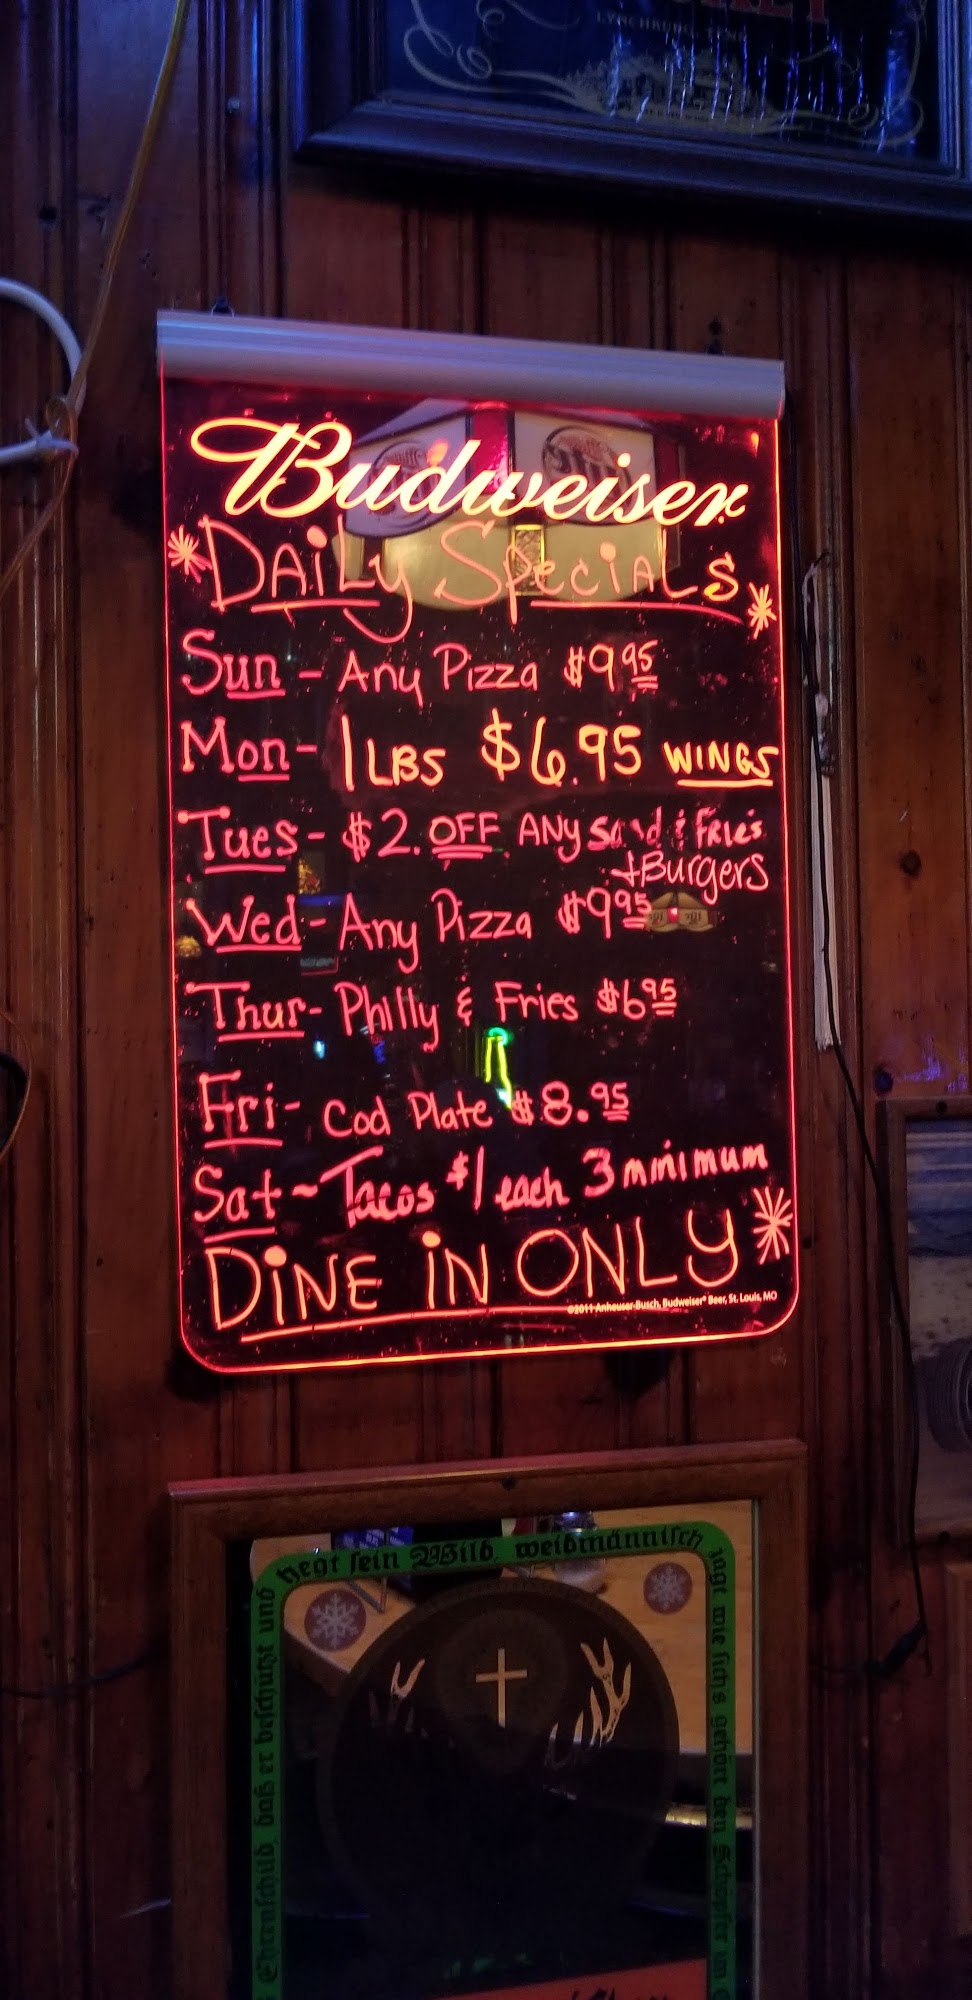 LYNCHBURG, TENN
Budweiser
Daily Specials
Sun - Any Pizza $9 95
Mon - 1 LBS $6.95 WINGS
Tues - $2. OFF ANy & FRies
+ Burgers
Wed - Any Pizza $9 95
Thur - Philly & Fries $6 95
Fri - Cod Plate $8.95
Sat ~ Tacos $1 each 3 minimum
DiNE iN ONLY
©2011 Anheuser-Busch, Budweiser® Beer, St. Louis, MO
Ehrenschild, daß er beschützt und
hegt sein Wild, weidmännisch
jagt wie sich's gehört den Schöpfer im